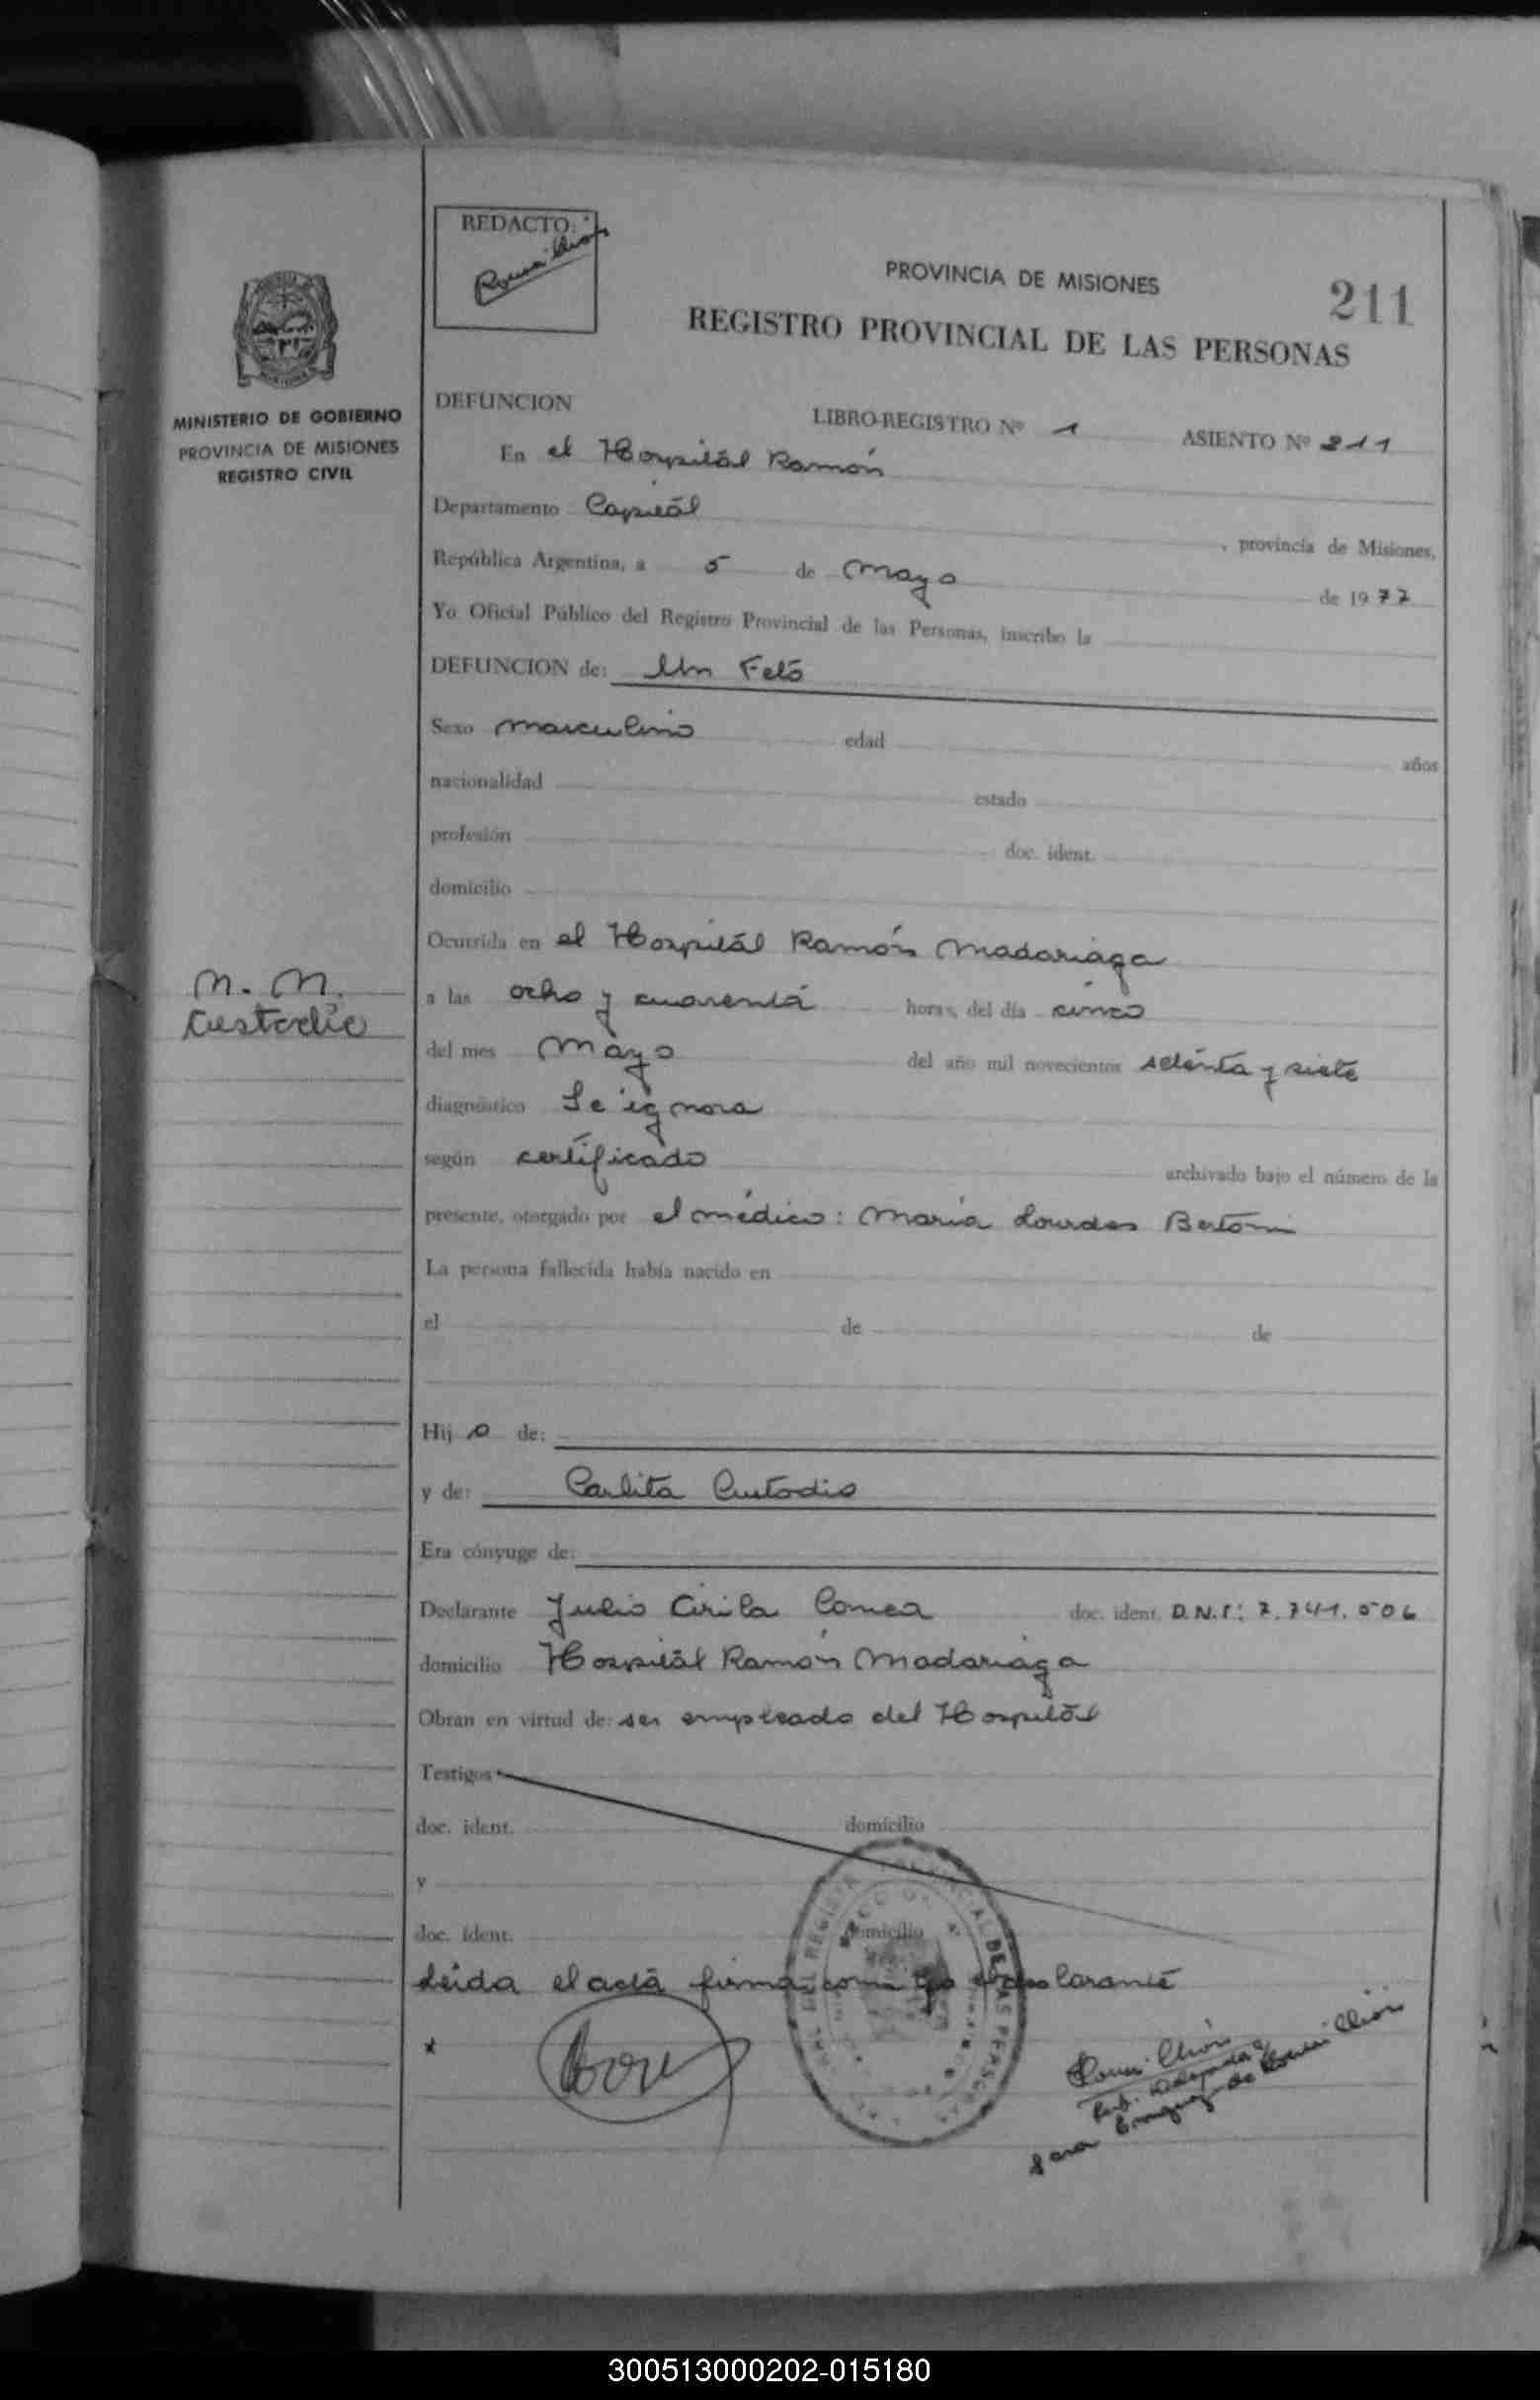 REDACTO:
PROVINCIA DE MISIONES
211
REGISTRO PROVINCIAL DE LAS PERSONAS
MINISTERIO DE GOBIERNO
PROVINCIA DE MISIONES
REGISTRO CIVIL
DEFUNCION LIBRO-REGISTRO Nº 1 ASIENTO Nº 211
En el Hospital Ramón
Departamento Capital , provincia de Misiones,
República Argentina, a 5 de Mayo de 1977
Yo Oficial Público del Registro Provincial de las Personas, inscribo la
DEFUNCION de: Un Feto
Sexo masculino edad años
nacionalidad estado
profesión doc. ident.
domicilio
Ocurrida en el Hospital Ramón Madariaga
N. N.
Custodio
a las ocho y cuarenta horas, del día cinco
del mes Mayo del año mil novecientos setenta y siete
diagnóstico Se ignora
según certificado archivado bajo el número de la
presente, otorgado por el médico: María Lourdes Bertoni
La persona fallecida había nacido en
el de de
Hijo de:
y de: Carlita Custodio
Era cónyuge de:
Declarante Julio Cirila doc. ident. D.N.I: 7.741.506
domicilio Hospital Ramón Madariaga
Obran en virtud de: ser empleado del Hospital
Testigos
doc. ident. domicilio
y
doc. ident. domicilio
Leida el acta firma declarante
300513000202-015180